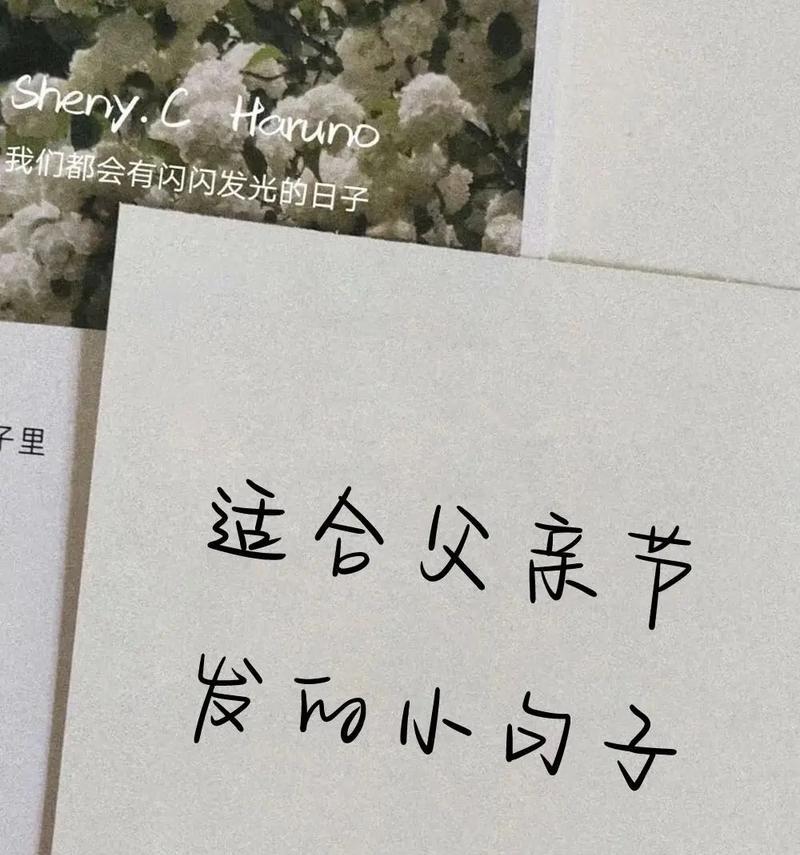 Sheny.C Haruno
我们都会有闪闪发光的日子
子里
适合父亲节
发的小句子